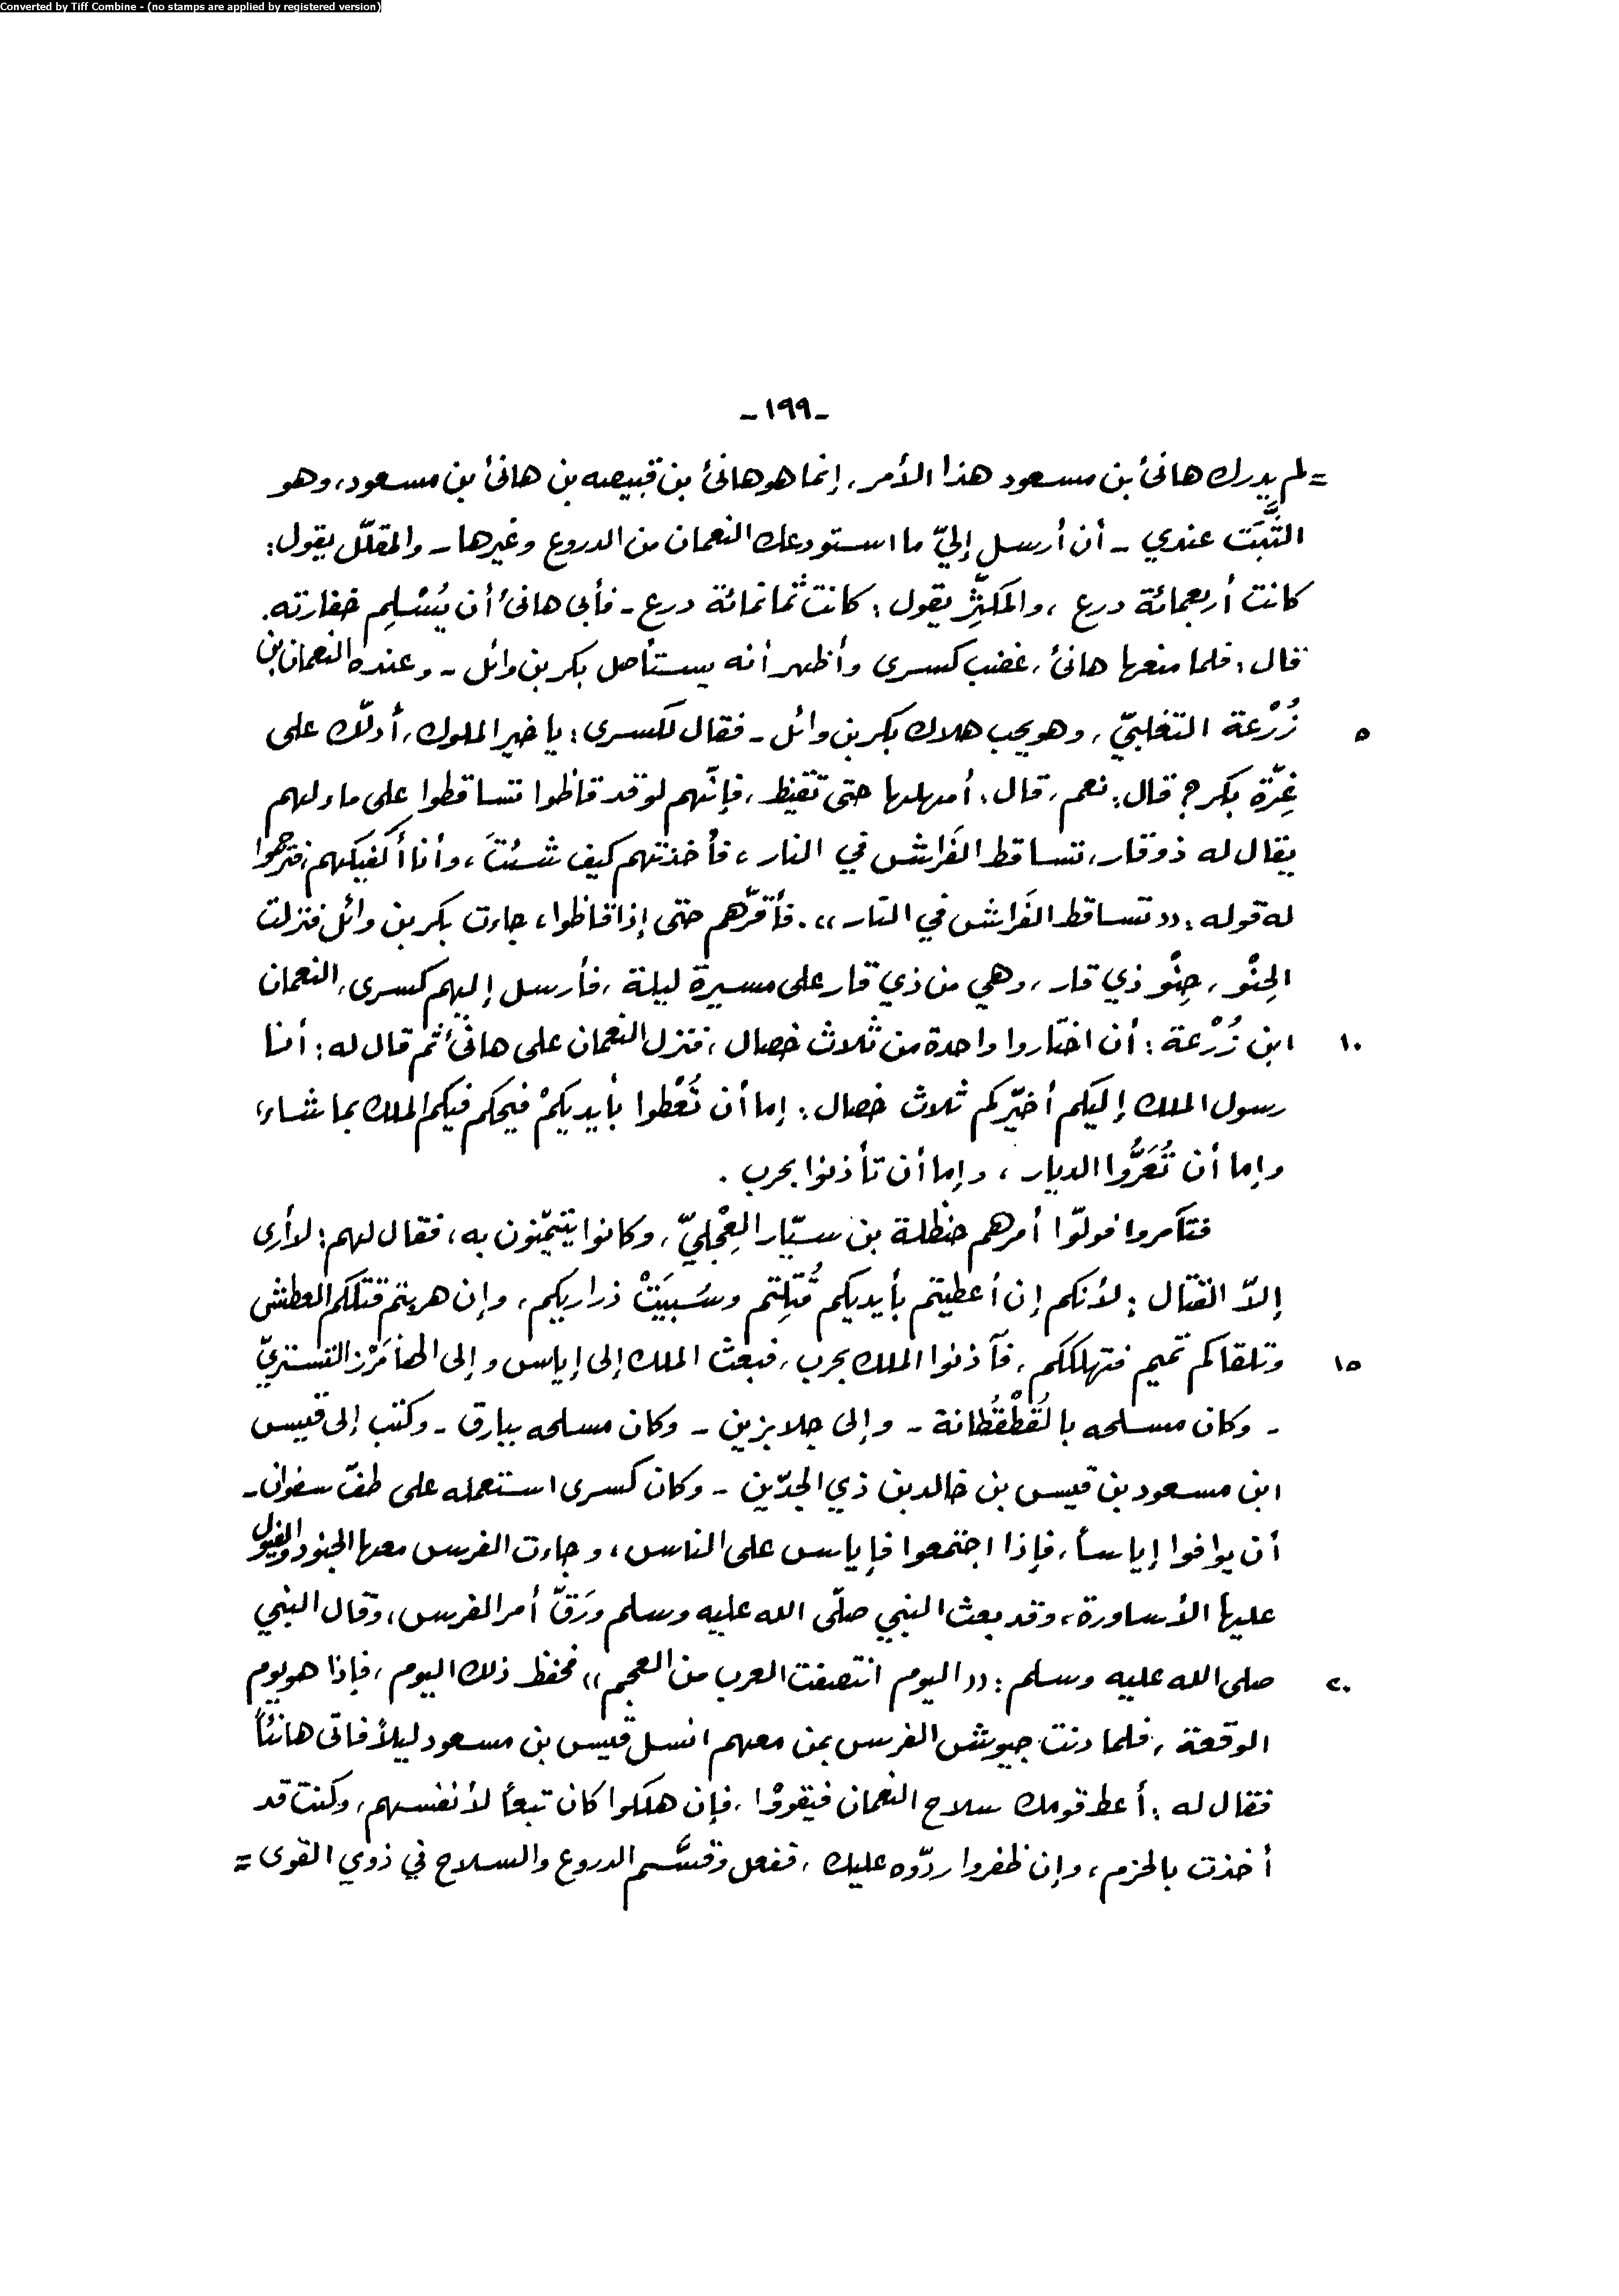 Converted by Tiff Combine - (no stamps are applied by registered version)
-١٩٩-
= لم يدرك هانئ بن مسعود هذا الأمر، إنما هو هانئ بن قبيصه بن هانئ بن مسعود، وهو
الثَّبَت عندي - أن أرسل إليّ ما استودعك النعمان من الدروع وغيرها - والمقلّل يقول:
كانت أربعمائة درع، والمكثِّر يقول: كانت ثمانمائة درع - فأبى هانئ أن يُسْلِم خفارته.
قال: فلما منعها هانئ، غضب كسرى وأظهر أنه يستأصل بكر بن وائل - وعنده النعمان بن
٥ زُرْعة التغلبيّ، وهو يحب هلاك بكر بن وائل - فقال لكسرى: يا خير الملوك، أدلّك على
غِرّة بكر؟ قال: نعم، قال: أمهلها حتى تقيظ، فإنّهم لو قد قاظوا تساقطوا على ماء لهم
يقال له ذوقار، تساقط الفَراش في النار، فأخذتهم كيف شئتَ، وأنا أكفيكهم، فترجموا
له قوله: «تساقط الفَراش في النار». فأقرّهم حتى إذا قاظوا، جاءت بكر بن وائل فنزلت
الحِنْو، حِنْو ذي قار، وهي من ذي قار على مسيرة ليلة، فأرسل إليهم كسرى، النعمان
١٠ ابن زُرْعة: أن اختاروا واحدة من ثلاث خصال، فنزل النعمان على هانئ ثم قال له: أنا
رسول الملك إليكم أخيّركم ثلاث خصال: إما أن تُعْطوا بأيديكمْ فيحكم فيكم الملك بما شاء،
وإما أن تُعَرُّوا الديار، وإما أن تأذنوا بحرب.
فتآمروا فولّوا أمرهم حنظلة بن سيّار العِجْليّ، وكانوا يتيمّنون به، فقال لهم: لا أرى
إلاّ القتال: لأنكم إن أعطيتم بأيديكم قُتِلتم وسُبيَتْ ذراريكم، وإن هربتم قتلكم العطش
١٥ وتلقاكم تميم فتهلككم، فآذنوا الملك بحرب، فبعث الملك إلى إياس وإلى الهامَرْز التستريّ
- وكان مسلحه بالقُطْقُطانة - وإلى جلابزين - وكان مسلحه ببارق - وكتب إلى قيس
ابن مسعود بن قيس بن خالد بن ذي الجدّين - وكان كسرى استعمله على طفّ سفوان -
أن يوافوا إياساً، فإذا اجتمعوا فإياس على الناس، وجاءت الفرس معها الجنود والفيول
عليها الأساورة، وقد بعث النبي صلّى الله عليه وسلم ورَقّ أمر الفرس، وقال النبي
٢٠ صلى الله عليه وسلم: «اليوم انتصفت العرب من العجم» فحفظ ذلك اليوم، فإذا هو يوم
الوقعة، فلما دنت جيوش الفرس بمن معهم انسل قيس بن مسعود ليلاً فأتى هانئاً
فقال له: أعط قومك سلاح النعمان فيقووْا، فإن هلكوا كان تبعاً لأنفسهم، وكنت قد
أخذت بالحزم، وإن ظفروا ردّوه عليك، ففعل وقسَّم الدروع والسلاح في ذوي القوى =